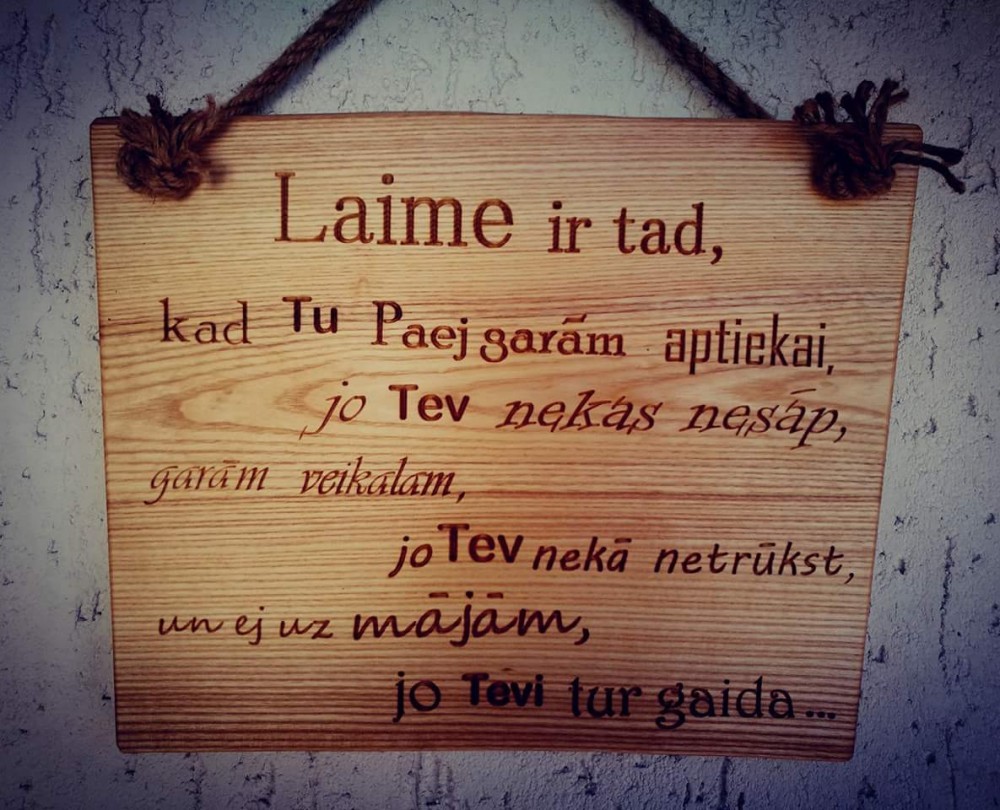 Laime ir tad,
kad Tu Paej garām aptiekai,
jo Tev nekas nesāp,
garām veikalam,
jo Tev nekā netrūkst,
un ej uz mājām,
jo Tevi tur gaida...